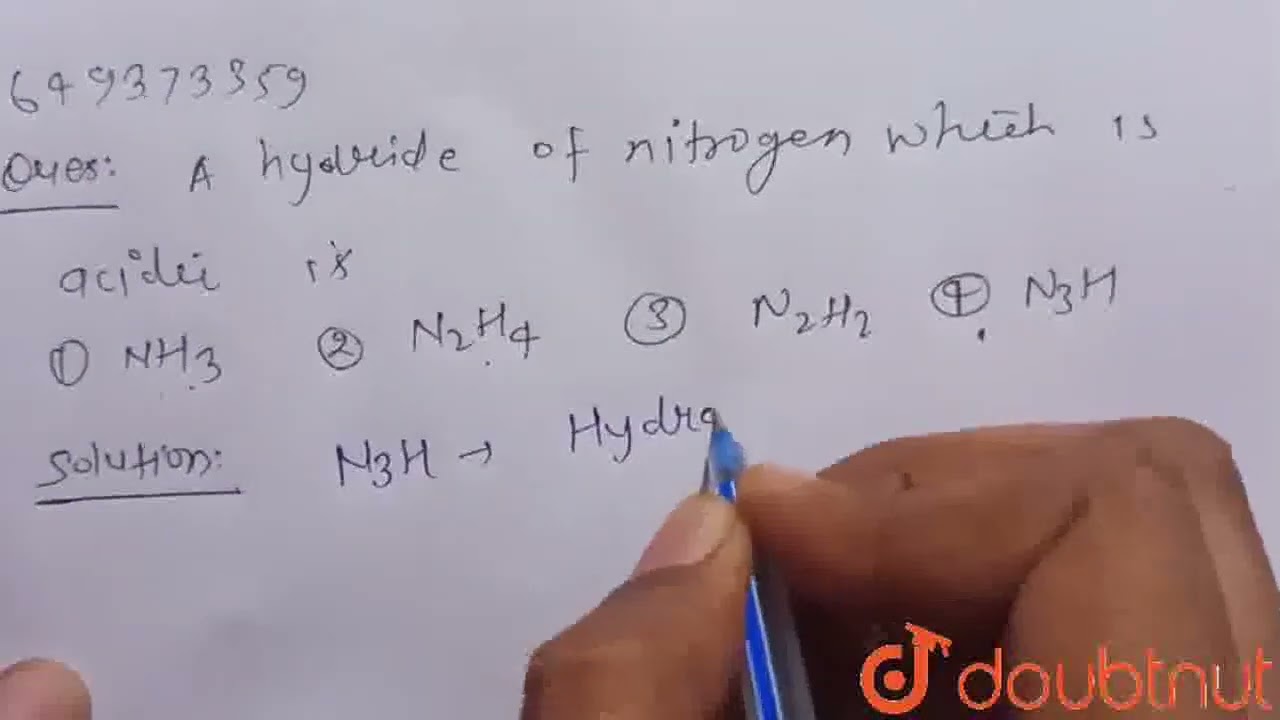 649373359
Ques: A hydride of nitrogen which is
acidic is
① NH3 ② N2H4 ③ N2H2 ④ N3H
Solution: N3H → Hydra
doubtnut